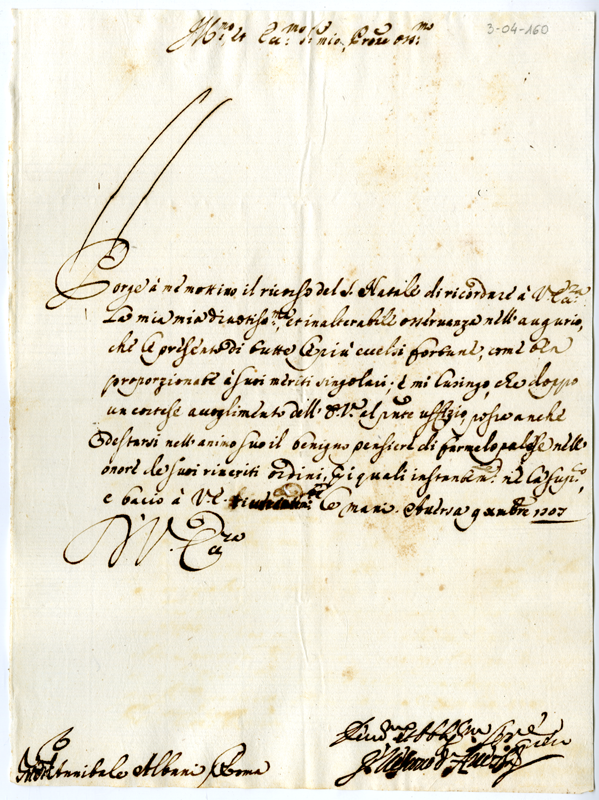 3-04-160
Ill.mo et Ecc.mo S.re mio, Prone oss.mo
Porge à me mottivo il ricorso del S. Natale di ricordare à V. Ecc.za
La mia mia divotiss.ma, et inalterabile osservanza nell'augurio,
che Le presento di tutte Le più eccelsi fortune, come ben
proporzionate à suoi meriti singolari; e mi Lusingo, che doppo
un cortese accoglimento dell' del pnte uffizio, possa anche
destarsi nell'animo suo il benigno pensiere di farmelo palese nell'
onore de suoi riveriti ordini, i quali instantem.te ne La supp.co,
e bacio à V.E. Le mani. Aversa 9 xmbre 1707
D V. Ecc.za
Annibale Albani Roma
Devot.mo et Obblig.mo Ser.re